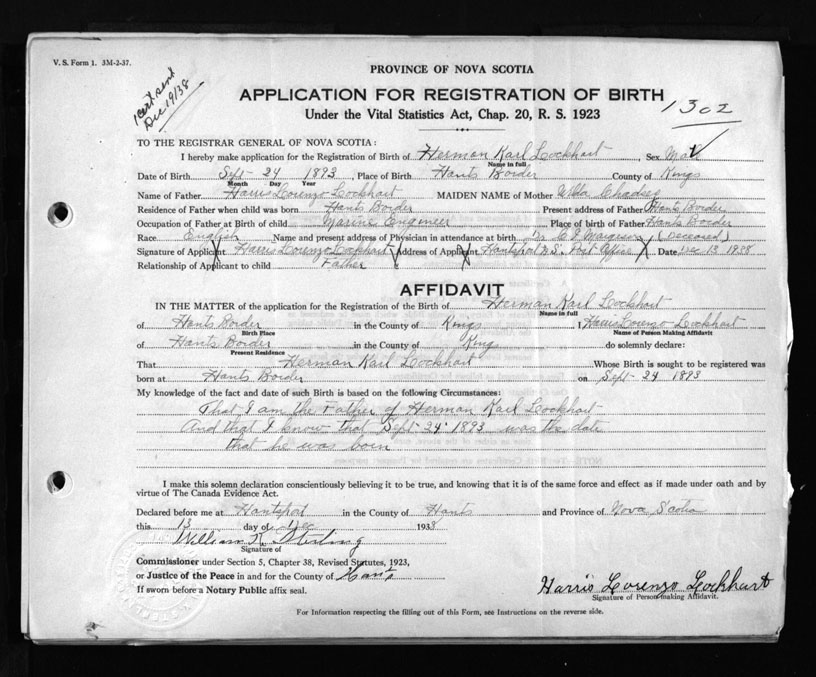 V. S. Form 1. 3M-2-37.
1 cert sent
Dec 19/38
PROVINCE OF NOVA SCOTIA
APPLICATION FOR REGISTRATION OF BIRTH
1302
Under the Vital Statistics Act, Chap. 20, R. S. 1923
TO THE REGISTRAR GENERAL OF NOVA SCOTIA:
I hereby make application for the Registration of Birth of Herman Karl Lockhart, Sex Male
Name in full
Date of Birth Sept 24 1893, Place of Birth Hants Border County of Kings
Month Day Year
Name of Father Harris Lorenzo Lockhart MAIDEN NAME of Mother
Residence of Father when child was born Hants Border Present address of Father Hants Border
Occupation of Father at Birth of child Marine Engineer Place of birth of Father Hants Border
Race English Name and present address of Physician in attendance at birth Dr (Deceased)
Signature of Applicant Harris Lorenzo Lockhart Address of Applicant Hantsport N.S. Post Office Date Dec 13 1938
Relationship of Applicant to child Father
AFFIDAVIT
IN THE MATTER of the application for the Registration of the Birth of Herman Karl Lockhart
Name in full
of Hants Border in the County of Kings I, Harris Lorenzo Lockhart
Birth Place Name of Person Making Affidavit
of Hants Border in the County of Kings do solemnly declare:
Present Residence
That Herman Karl Lockhart Whose Birth is sought to be registered was
born at Hants Border on Sept 24 1893
My knowledge of the fact and date of such Birth is based on the following Circumstances:
That I am the Father of Herman Karl Lockhart
And that I know that Sept 24 1893 was the date
that he was born
I make this solemn declaration conscientiously believing it to be true, and knowing that it is of the same force and effect as if made under oath and by
virtue of The Canada Evidence Act.
Declared before me at Hantsport in the County of Hants and Province of Nova Scotia
this 13 day of Dec 1938
William K. Sterling
Signature of
Commissioner under Section 5, Chapter 38, Revised Statutes, 1923,
or Justice of the Peace in and for the County of Hants
If sworn before a Notary Public affix seal.
Harris Lorenzo Lockhart
Signature of Person making Affidavit.
For Information respecting the filling out of this Form, see Instructions on the reverse side.